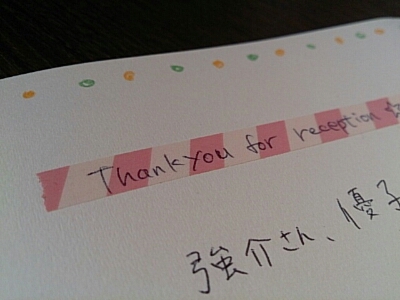 Thank you for reception
強介さん、優子